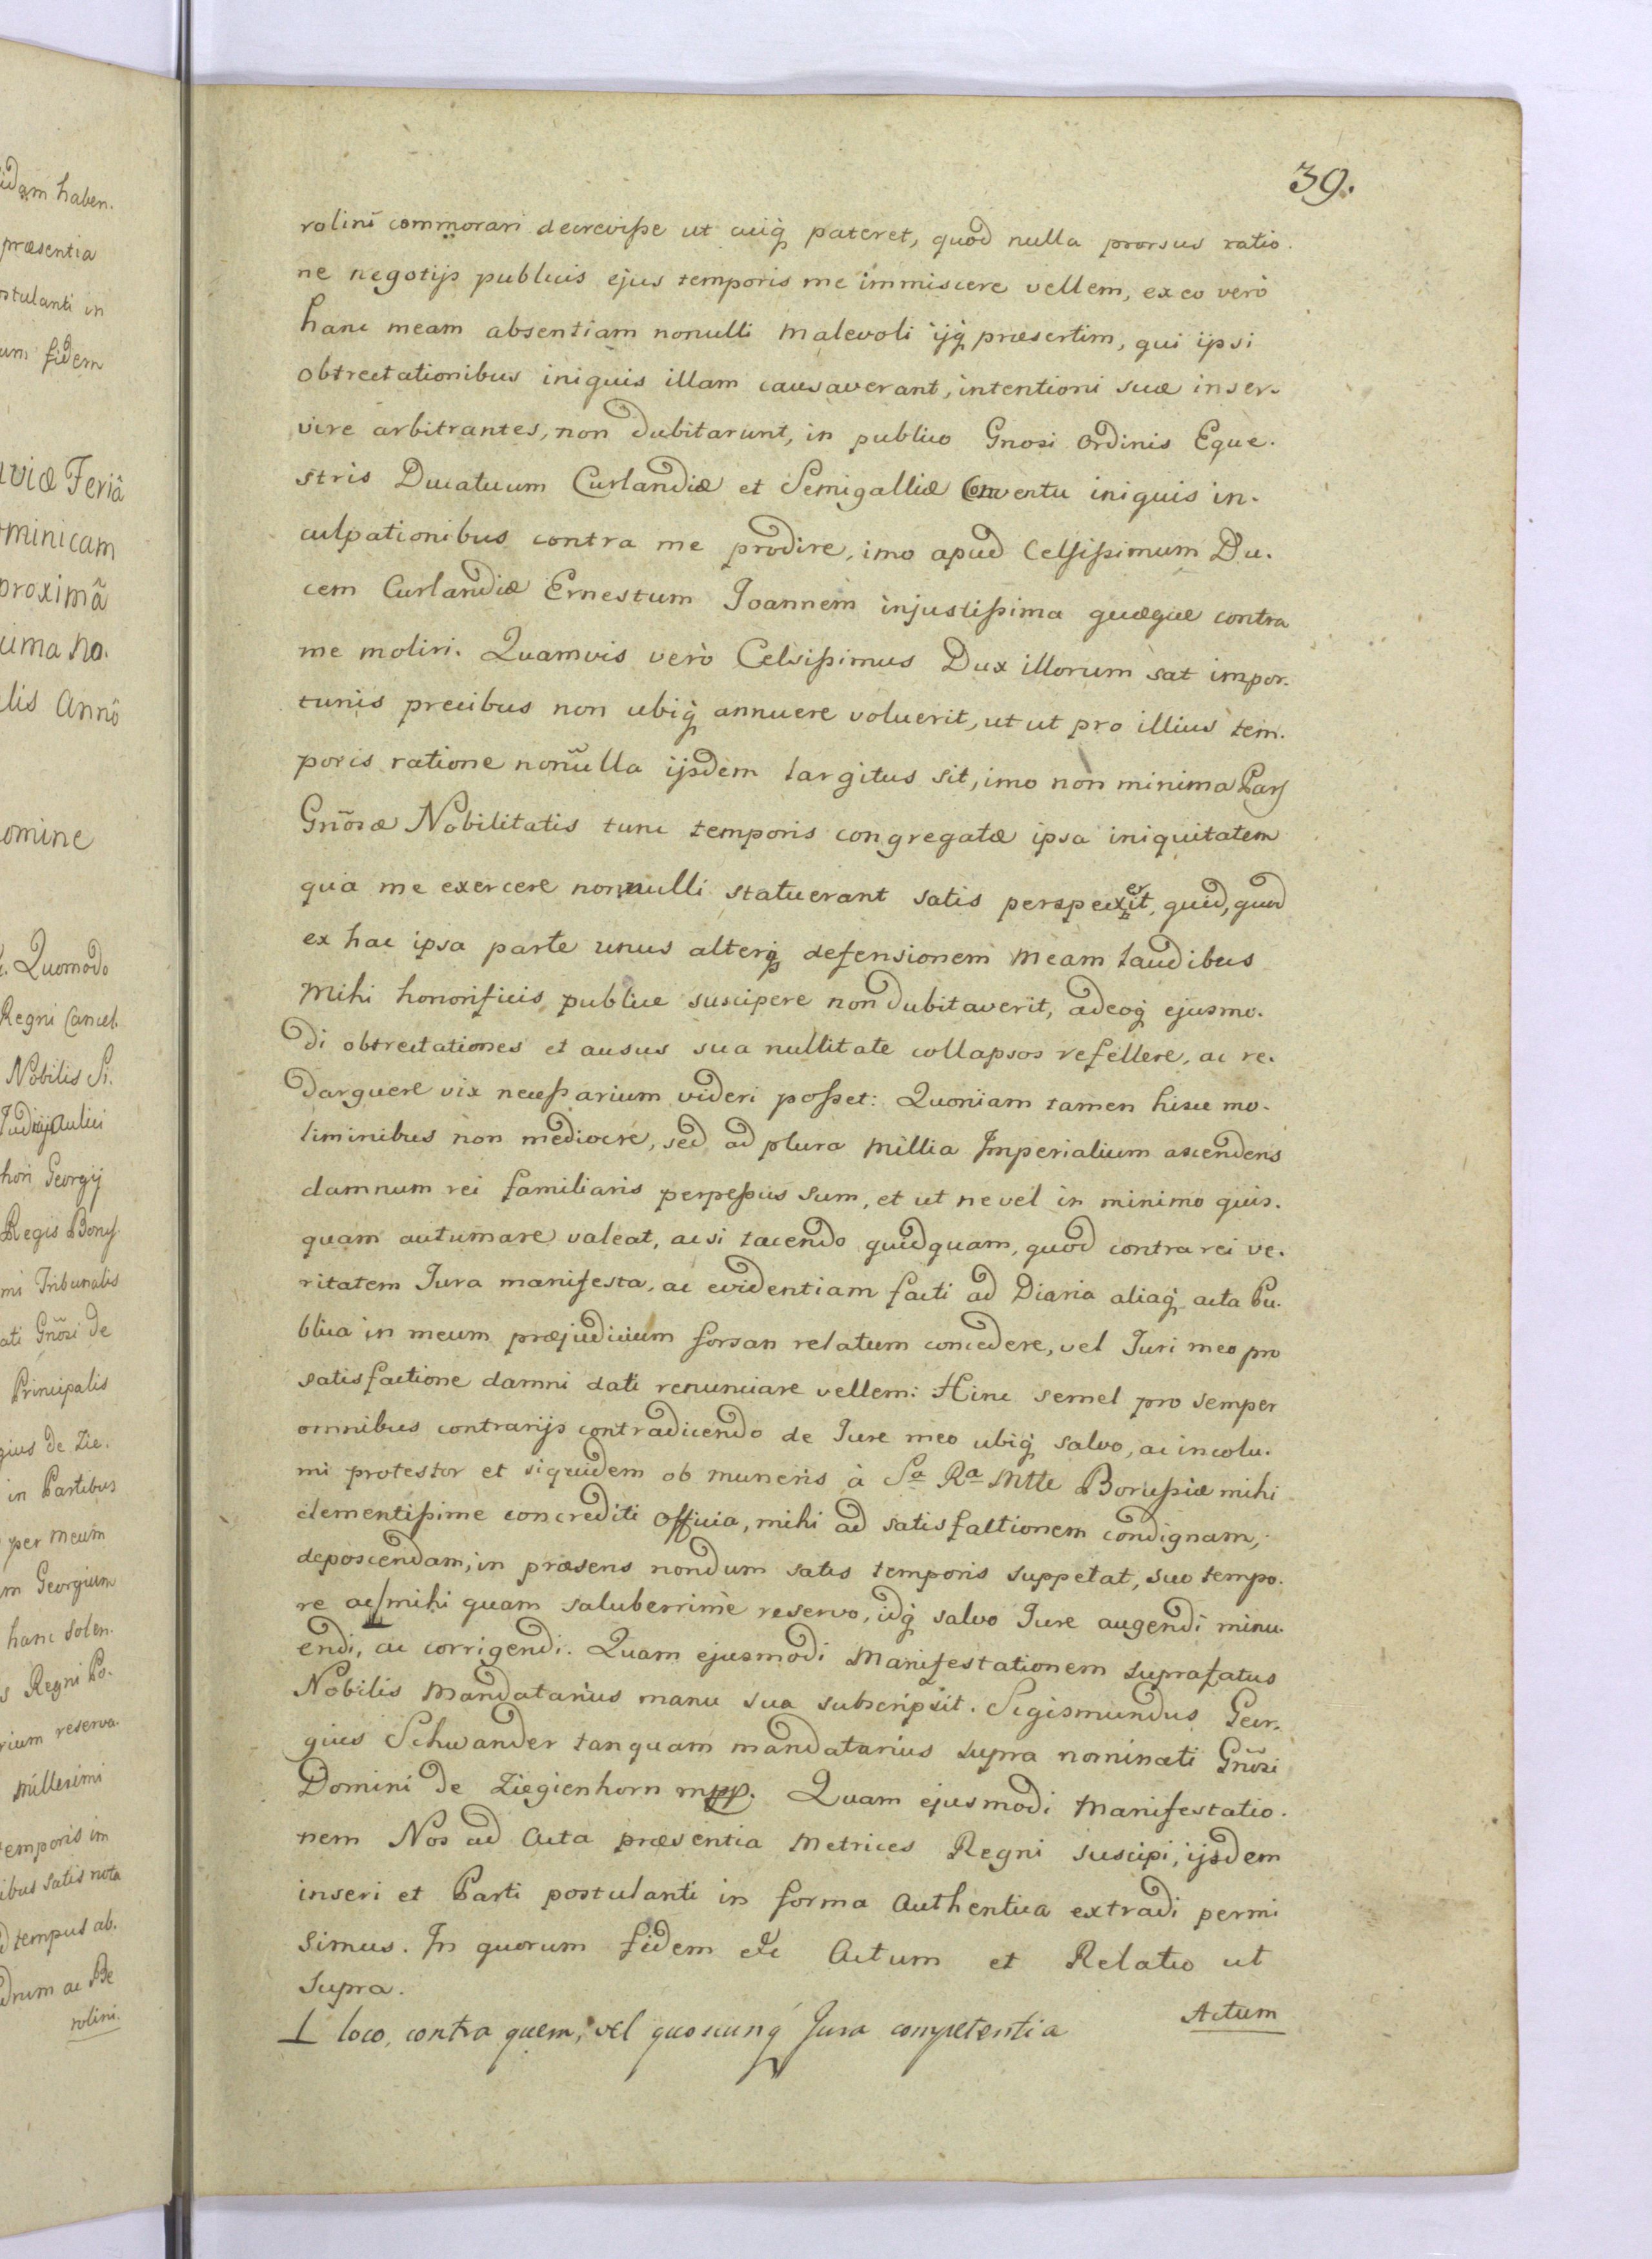 39.
rolini commorari decrevisse ut cuiq̃ pateret, quod nulla prorsus ratio.
ne negotijs publicis ejus temporis me immiscere vellem, ex eo verò
hanc meam absentiam nonulli malevoli ijq̃ præsertim, qui ipsi
obtrectationibus iniquis illam causaverant, intentioni suæ inser-
vire arbitrantes, non dubitarunt, in publico Gnosi Ordinis Eque.
stris Ducatuum Curlandiæ et Semigalliæ Conventu iniquis in.
culpationibus contra me prodire, imo apud Celsissimum Du.
cem Curlandiæ Ernestum Joannem injustissima quæque contra
me moliri. Quamvis verò Celsissimus Dux illorum sat impor.
tunis precibus non ubiq̃ annuere voluerit, ut ut pro illius tem.
poris ratione nonũlla ijsdem largitus sit, imo non minima Pars
Gnõsæ Nobilitatis tunc temporis congregatæ ipsa iniquitatem
qua me exercere nonnulli statuerant satis perspexerit, quid, quod
ex hac ipsa parte unus alterq̃ defensionem meam laudibus
mihi honorificis publice suscipere non dubitaverit, adeoq̃ ejusmo.
di obtrectationes et ausus sua nullitate collapsos refellere, ac re.
darguere vix necessarium videri posset: Quoniam tamen hisce mo.
liminibus non mediocre, sed ad plura millia Imperialium ascendens
damnum rei familiaris perpessus sum, et ut ne vel in minimo quis.
quam autumare valeat, acsi tacendo quidquam, quod contra rei ve.
ritatem Jura manifesta, ac evidentiam facti ad Diaria aliaq̃ acta Pu.
blica in meum præjudicium forsan relatum concedere, vel Juri meo pro
satisfactione damni dati renunciare vellem: Hinc semel pro semper
omnibus contrarijs contradicendo de Jure meo ubiq̃ salvo, ac incolu.
mi protestor et siquidem ob muneris à Sa Ra Mtte Borussiæ mihi
clementissime concrediti Officia, mihi ad satisfactionem condignam,
deposcendam, in præsens nondum satis temporis suppetat, suo tempo.
re ac ⊥ mihi quam saluberrimè reservo, idq̃ salvo Jure augendi minu.
endi, ac corrigendi. Quam ejusmodi Manifestationem suprafatus
Nobilis Mandatarius manu sua subscripsit. Sigismundus Geor.
gius Schwander tanquam mandatarius supra nominati Gnõsi
Domini de Ziegienhorn mpp. Quam ejusmodi Manifestatio.
nem Nos ad Acta præsentia Metrices Regni suscipi, ijsdem
inseri et Parti postulanti in forma Authentica extradi permi
simus. In quorum fidem etc Actum et Relatio ut
supra.
⊥ loco, contra quem, vel quoscunq̃ Jura competentia
Actum